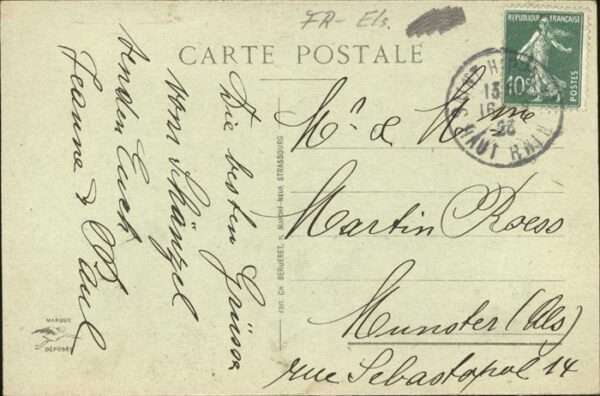 FR- Els.
CARTE POSTALE
RÉPUBLIQUE FRANÇAISE
10c
POSTES
HAUT RHIN
Die besten Grüsse
vom Schänzel
senden Euch
Jeanne & Paul
Mr & Mme
Martin Roess
Munster (Als)
rue Sebastopol 14
EDIT. CH. BERGERET, MARCHÉ-NEUF STRASBOURG
MARQUE
DÉPOSÉE